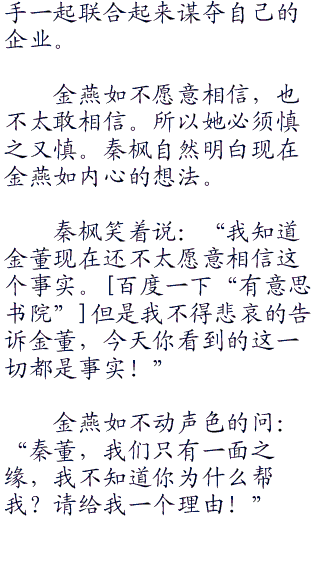 手一起联合起来谋夺自己的
企业。
金燕如不愿意相信，也
不太敢相信。所以她必须慎
之又慎。秦枫自然明白现在
金燕如内心的想法。
秦枫笑着说：“我知道
金董现在还不太愿意相信这
个事实。[百度一下“有意思
书院”]但是我不得悲哀的告
诉金董，今天你看到的这一
切都是事实！”
金燕如不动声色的问：
“秦董，我们只有一面之
缘，我不知道你为什么帮
我？请给我一个理由！”